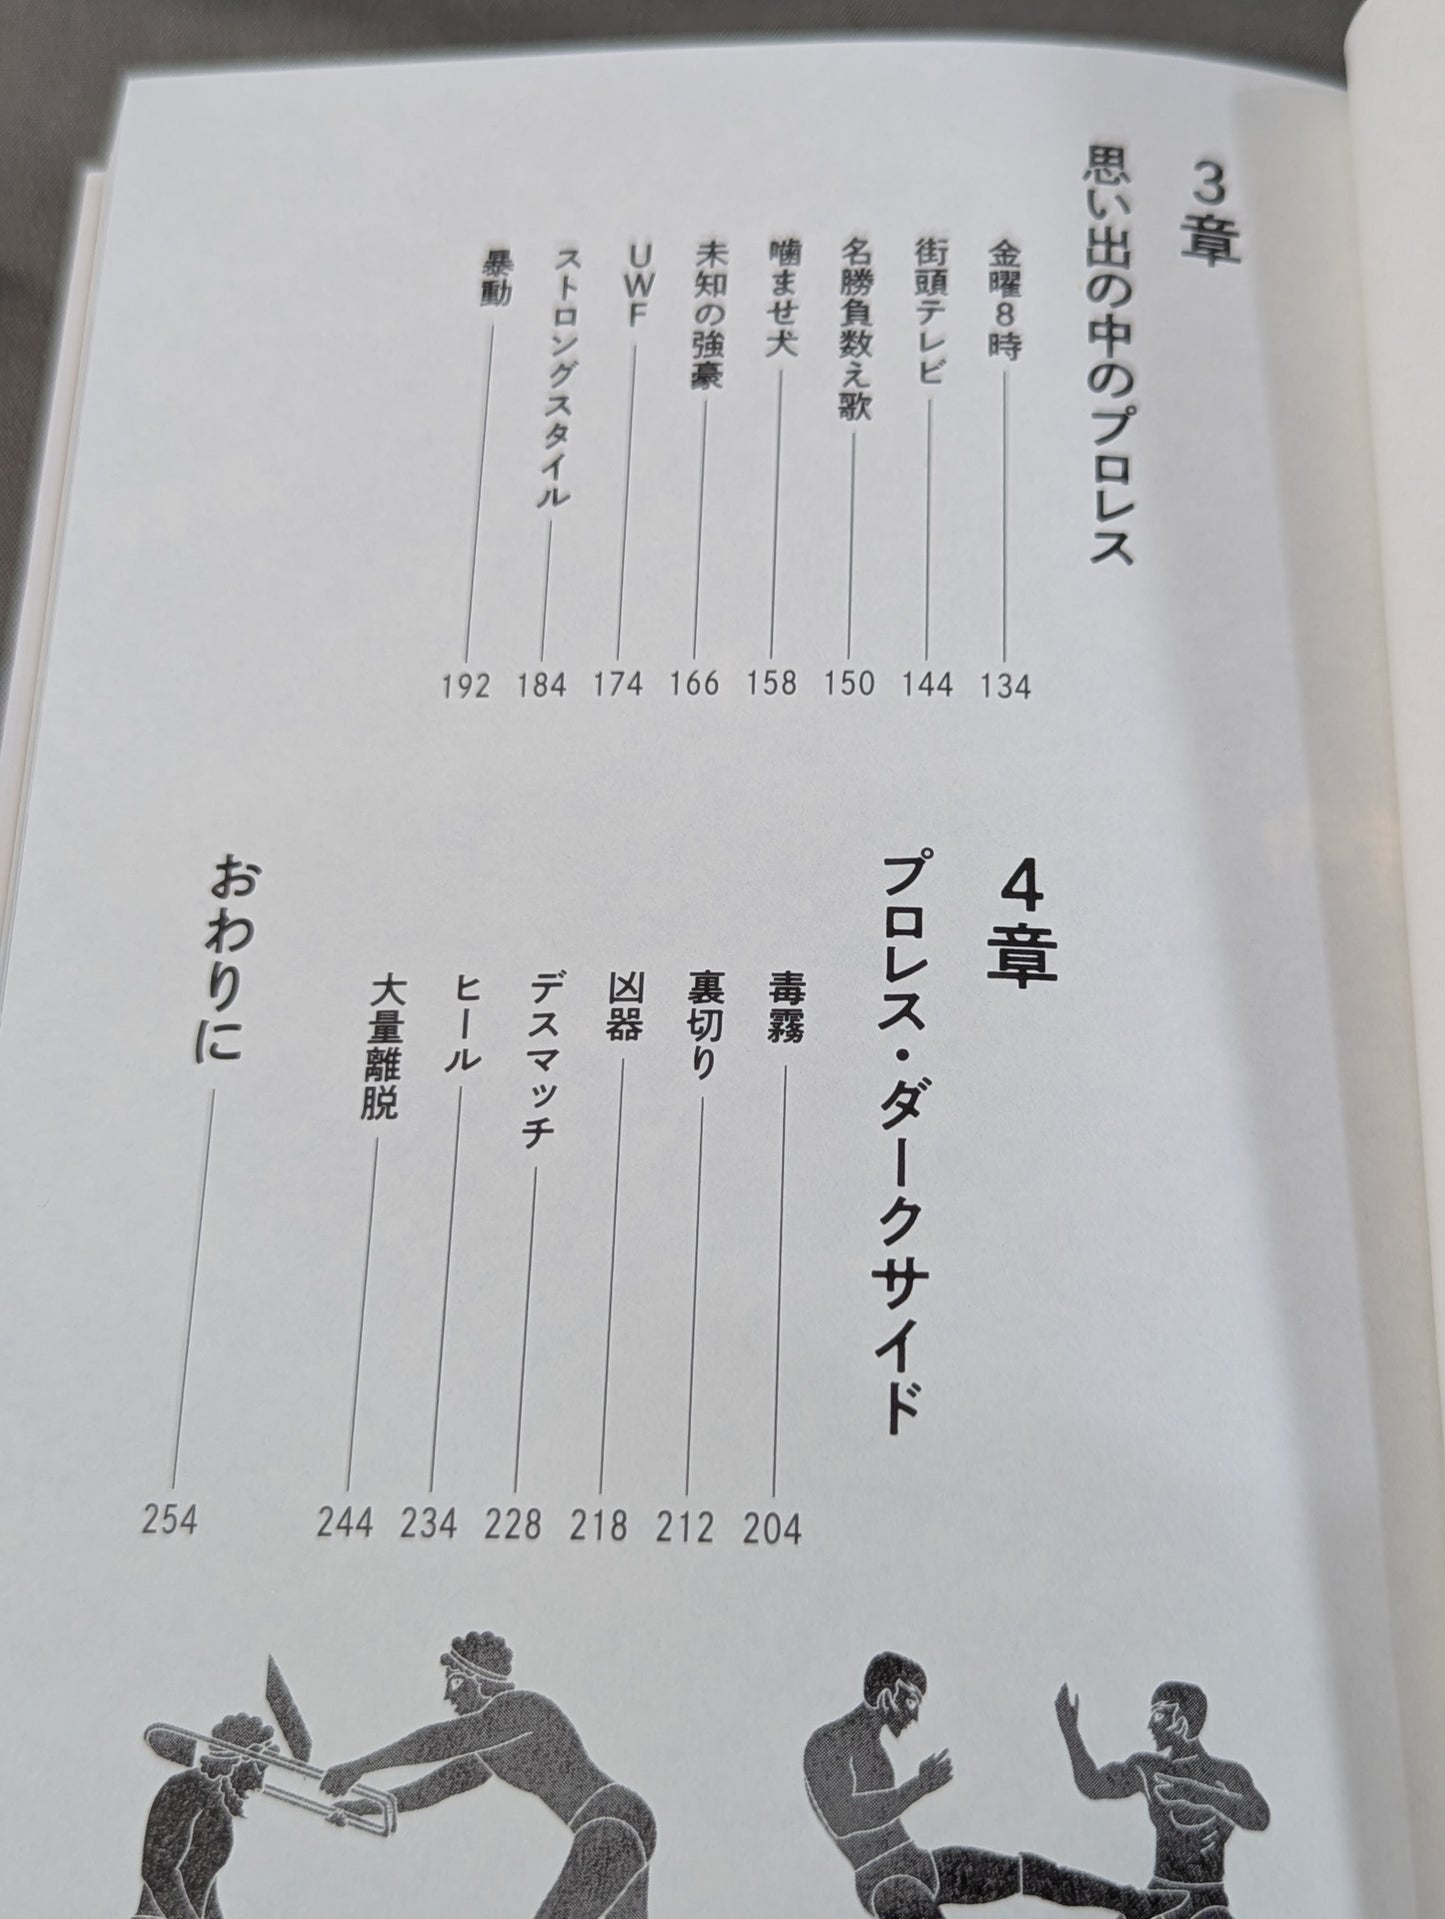 3章
思い出の中のプロレス
金曜8時 134
街頭テレビ 144
名勝負数え歌 150
噛ませ犬 158
未知の強豪 166
UWF 174
ストロングスタイル 184
暴動 192
4章
プロレス・ダークサイド
毒霧 204
裏切り 212
凶器 218
デスマッチ 228
ヒール 234
大量離脱 244
おわりに 254